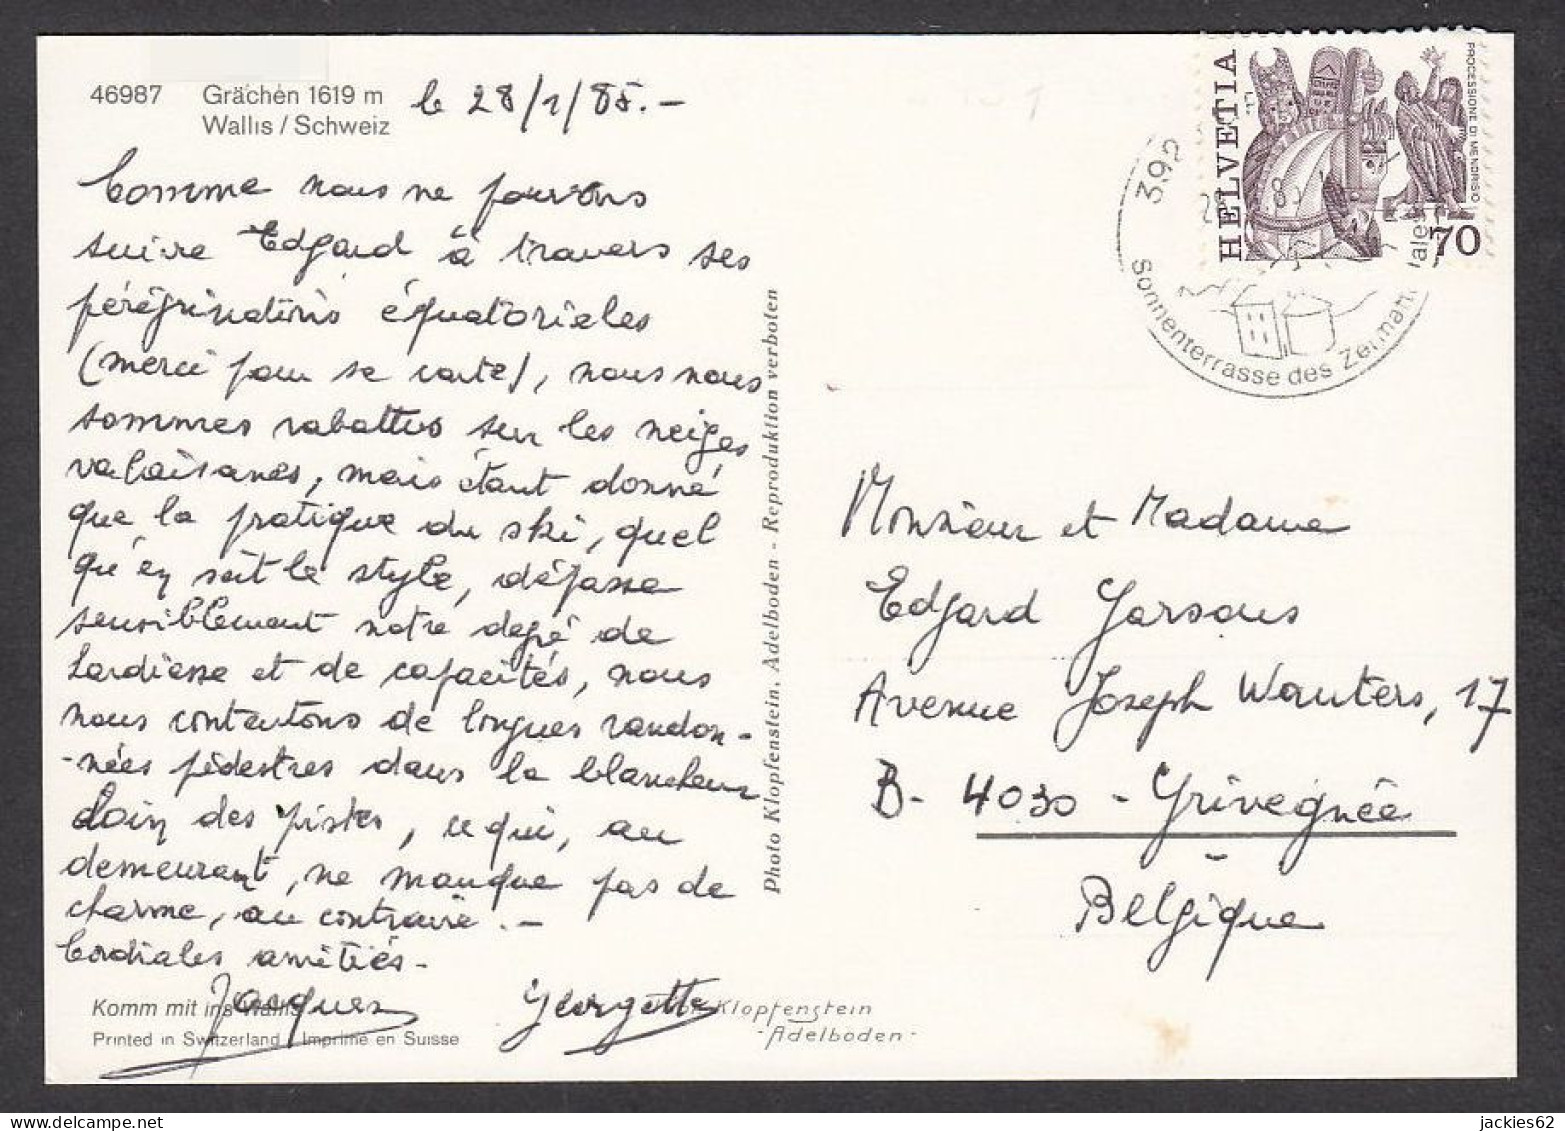 46987 Grächen 1619 m
Wallis / Schweiz
le 28/1/85.-
Comme nous ne pouvons
suivre Edgard à travers ses
pérégrinations équatoriales
(merci pour sa carte), nous nous
sommes rabattus sur les neiges
valaisanes, mais étant donné
que la pratique du ski, quel
qu'en soit le style, dépasse
sensiblement notre degré de
hardiesse et de capacités, nous
nous contentons de longues randon-
-nées pédestres dans la blancheur
loin des pistes, ce qui, au
demeurant, ne manque pas de
charme, au contraire.-
Cordiales amitiés-
Jacques Georgette
Komm mit ins Wallis
Printed in Switzerland / Imprimé en Suisse
Klopfenstein
-Adelboden-
Photo Klopfenstein, Adelboden - Reproduktion verboten
HELVETIA
PROCESSIONE DI MENDRISIO
70
392
Sonnenterrasse des Zermatt
Monsieur et Madame
Edgard
Avenue Joseph Wauters, 17
B- 4030 - Grivegnée
-
Belgique
jackies62